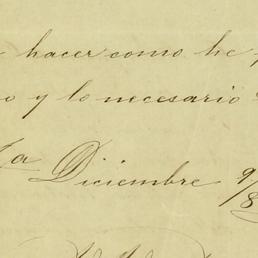 hacer como he
o y lo necesario
Diciembre 9/8